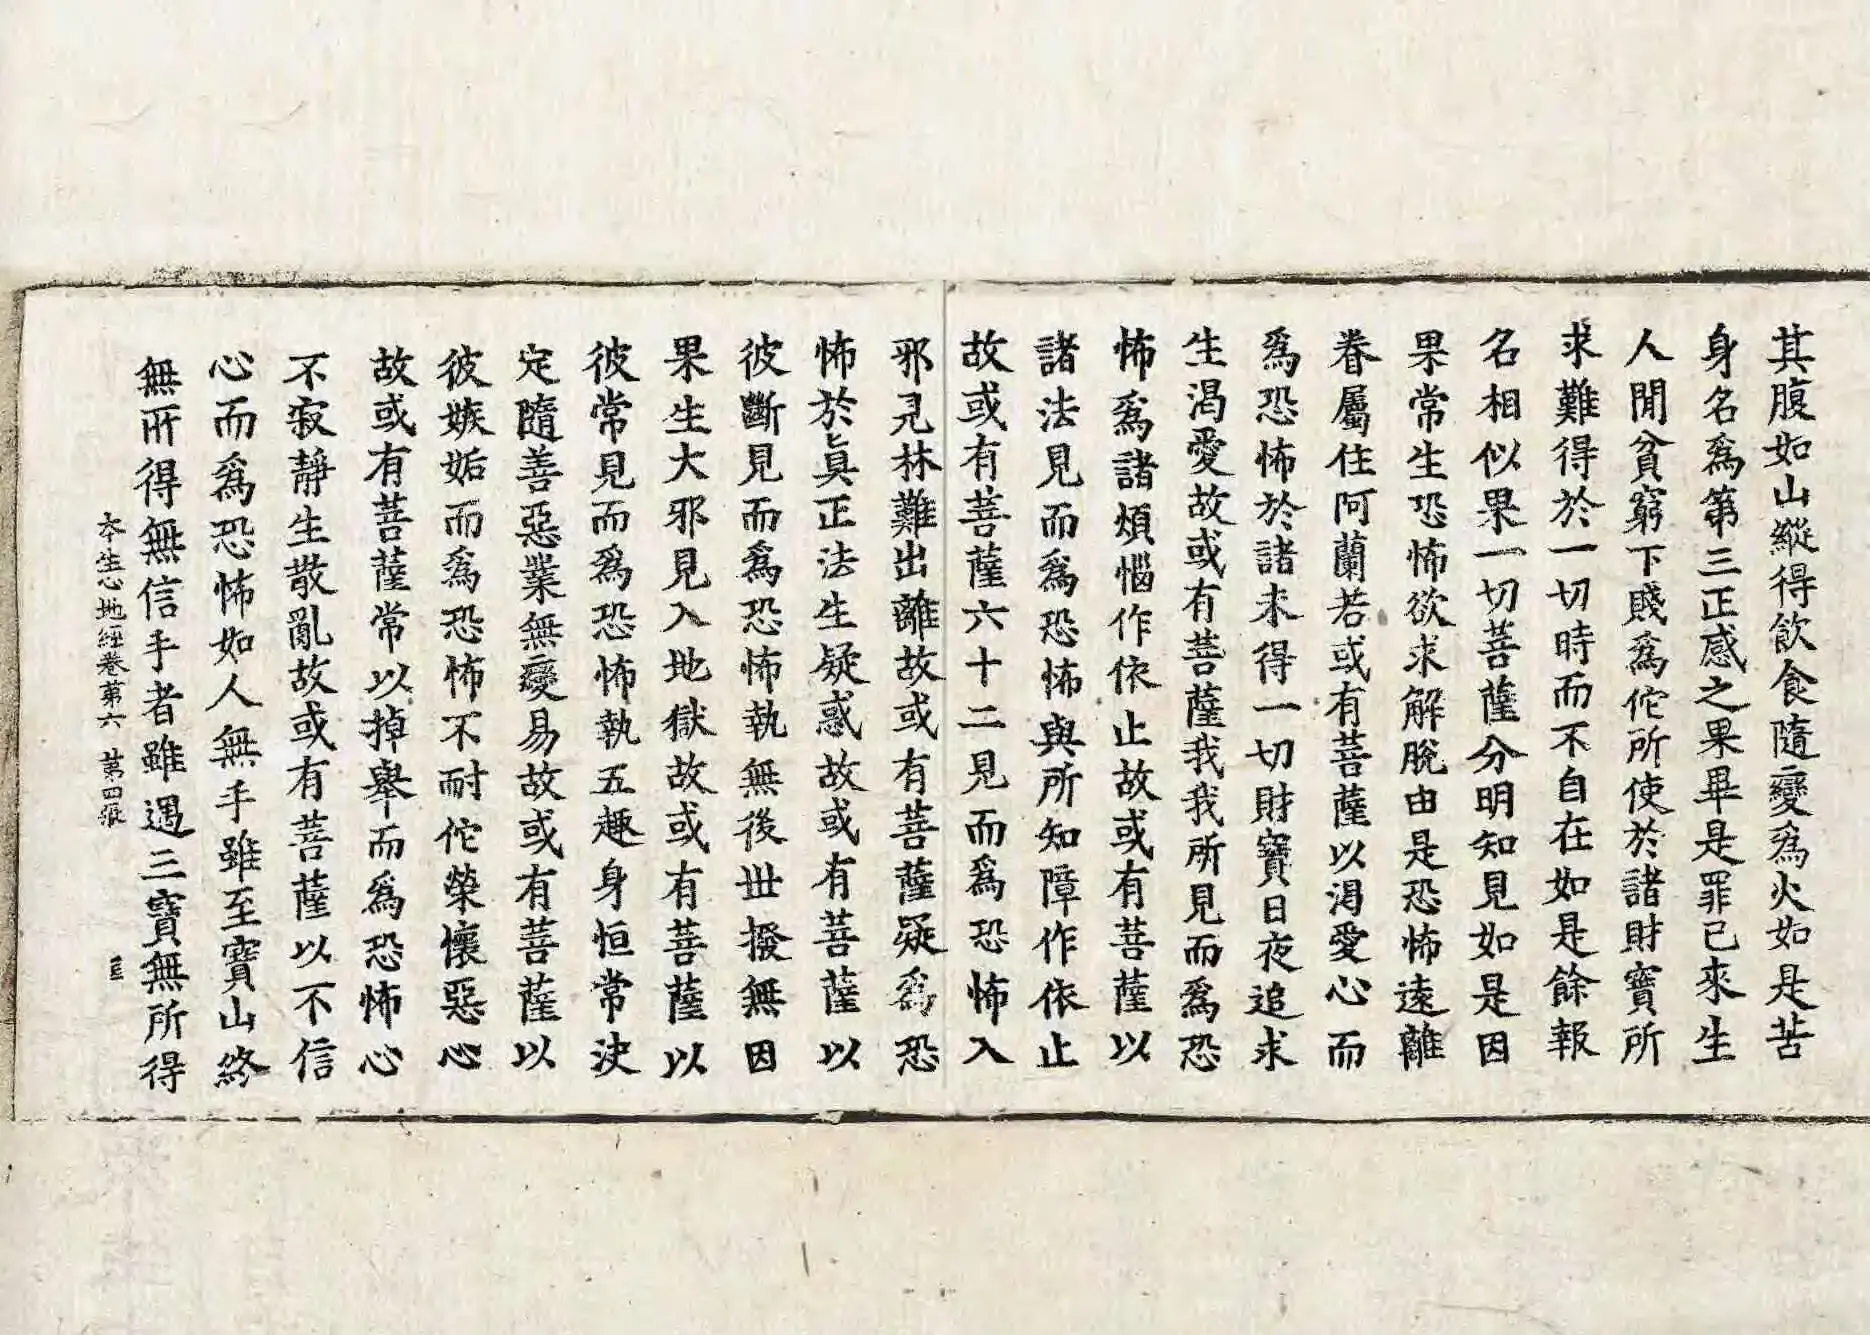 其腹如山縱得飲食隨變爲火如是苦
身名爲第三正感之果畢是罪已來生
人閒貧窮下賤爲佗所使於諸財寶所
求難得於一切時而不自在如是餘報
名相似果一切菩薩分明知見如是因
果常生恐怖欲求解脫由是恐怖遠離
眷屬住阿蘭若或有菩薩以渴愛心而
爲恐怖於諸未得一切財寶日夜追求
生渴愛故或有菩薩我我所見而爲恐
怖爲諸煩惱作依止故或有菩薩以
諸法見而爲恐怖與所知障作依止
故或有菩薩六十二見而爲恐怖入
邪見林難出離故或有菩薩疑爲恐
怖於眞正法生疑惑故或有菩薩以
彼斷見而爲恐怖執無後世撥無因
果生大邪見入地獄故或有菩薩以
彼常見而爲恐怖執五趣身恒常決
定隨善惡業無變易故或有菩薩以
彼嫉妬而爲恐怖不耐佗榮懷惡心
故或有菩薩常以掉舉而爲恐怖心
不寂靜生散亂故或有菩薩以不信
心而爲恐怖如人無手雖至寶山終
無所得無信手者雖遇三寶無所得
本生心地經卷第六 第四張